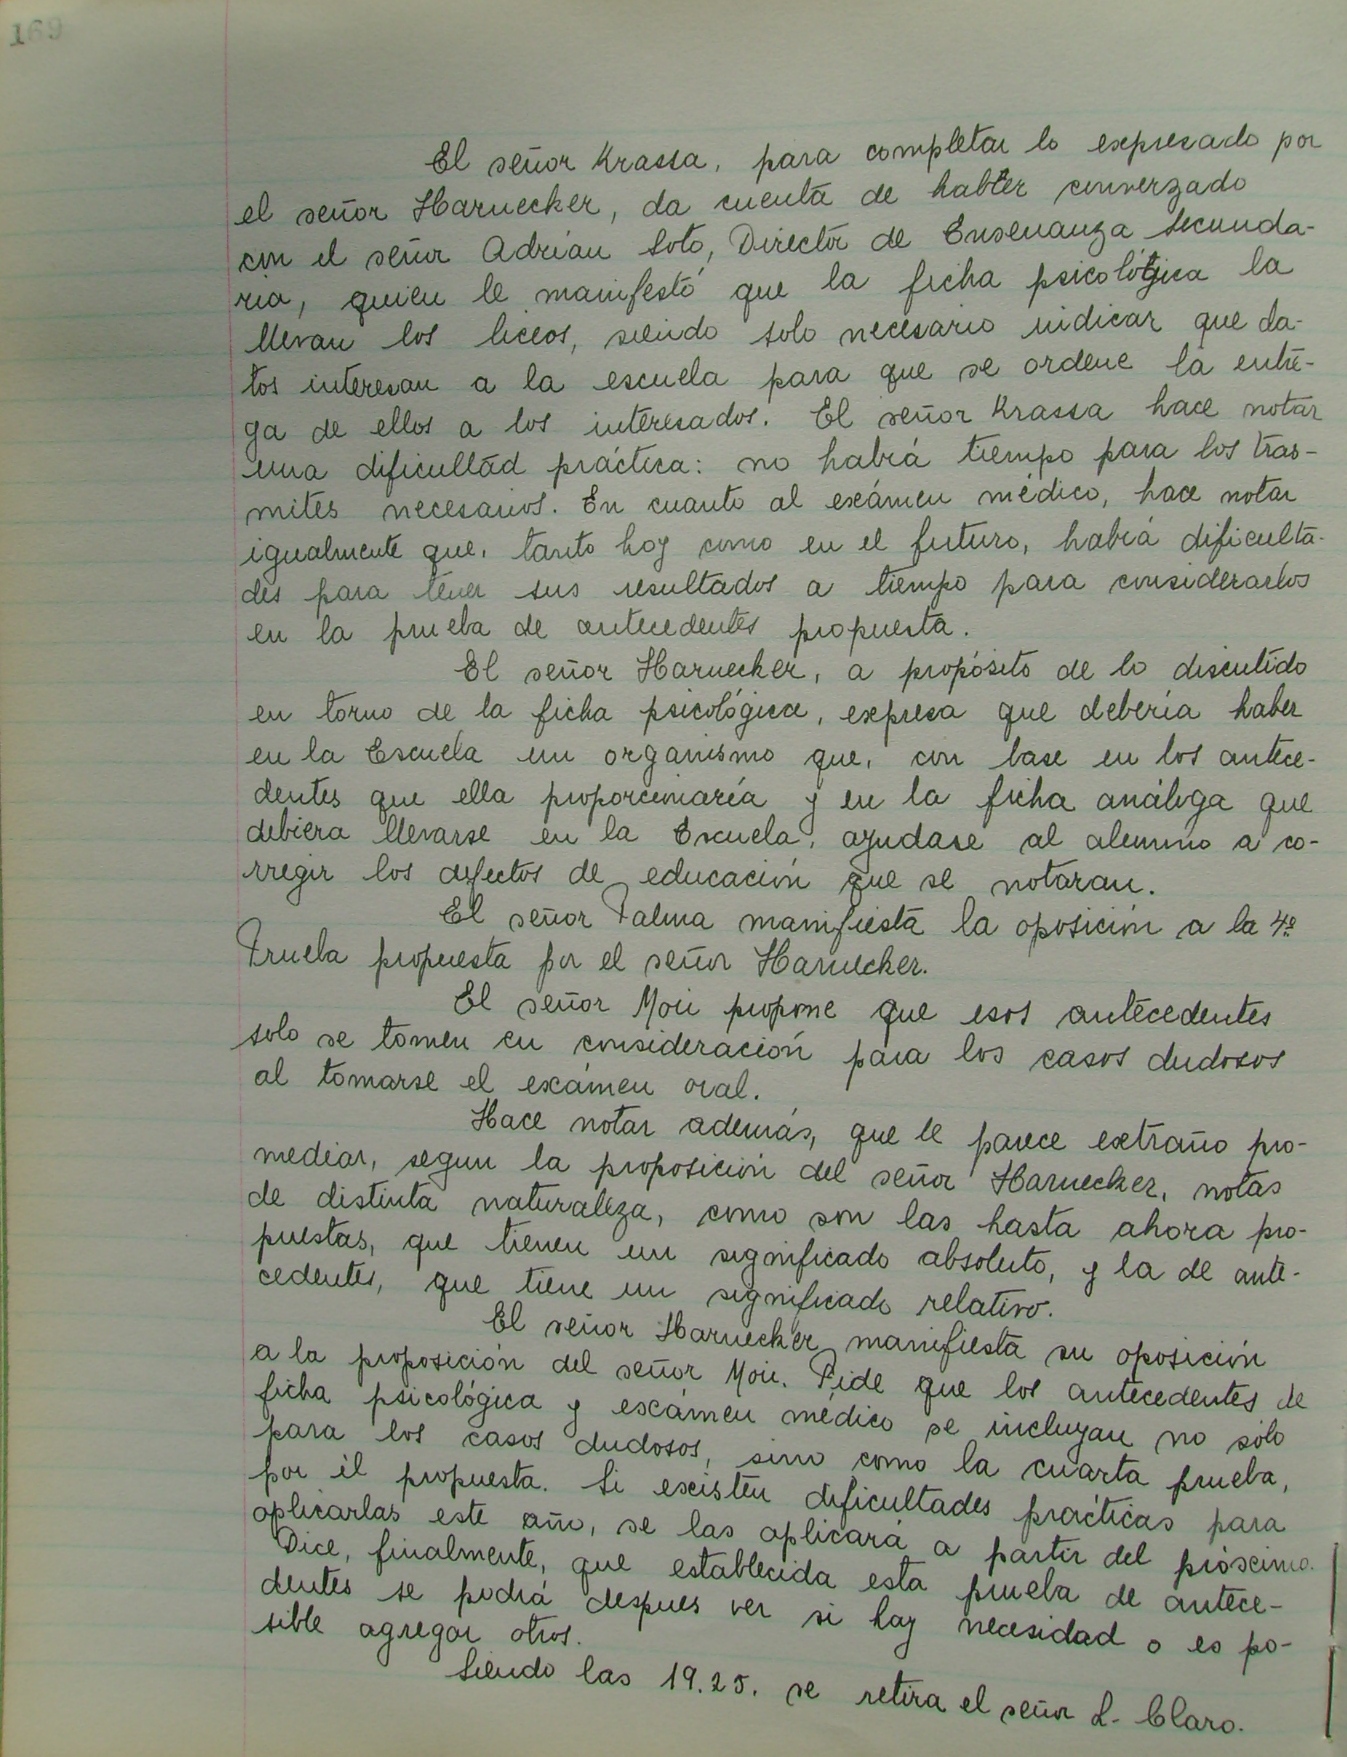 169
El señor Krassa, para completar lo expresado por
el señor Harnecker, da cuenta de haber converzado
con el señor Adrian Soto, Director de Ensenanza Secunda-
ria, quien le manifestó que la ficha psicológica la
llevan los liceos, siendo solo necesario indicar que da-
tos interesan a la escuela para que se ordene la entre-
ga de ellos a los interesados. El señor Krassa hace notar
una dificultad práctica: no habrá tiempo para los tras-
mites necesarios. En cuanto al exámen médico, hace notar
igualmente que, tanto hoy como en el futuro, habrá dificulta-
des para tener sus resultados a tiempo para considerarlos
en la prueba de antecedentes propuesta.
El señor Harnecker, a propósito de lo discutido
en torno de la ficha psicológica, expresa que debería haber
en la Escuela un organismo que, con base en los antece-
dentes que ella proporcionaría y en la ficha análoga que
debiera llevarse en la Escuela, ayudase al alumno a co-
rregir los defectos de educación que se notaran.
El señor Palma manifiesta la oposición a la 4ª
Prueba propuesta por el señor Harnecker.
El señor Mori propone que esos antecedentes
solo se tomen en consideración para los casos dudosos
al tomarse el exámen oral.
Hace notar además, que le parece extraño pro-
mediar, segun la proposición del señor Harnecker, notas
de distinta naturaleza, como son las hasta ahora pro-
puestas, que tienen un significado absoluto, y la de ante-
cedentes, que tiene un significado relativo.
El señor Harnecker manifiesta su oposición
a la proposición del señor Mori. Pide que los antecedentes de
ficha psicológica y exámen médico se incluyan no sólo
para los casos dudosos, sino como la cuarta prueba,
por él propuesta. Si existen dificultades prácticas para
aplicarlas este año, se las aplicará a partir del próximo.
Dice, finalmente, que establecida esta prueba de antece-
dentes se podrá despues ver si hay necesidad o es po-
sible agregar otros.
Siendo las 19.25. se retira el señor L. Claro.